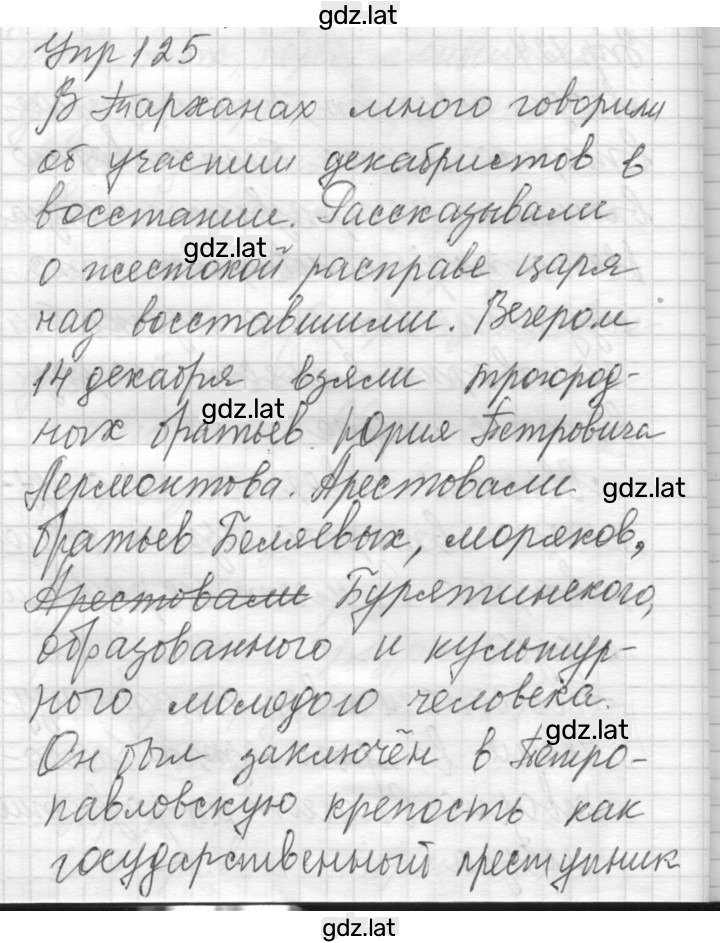 gdz.lat
Упр 125
В Тарханах много говорили
об участии декабристов в
восстании. Рассказывали
gdz.lat
о жестокой расправе царя
над восставшими. Вечером
14 декабря взяли трогород-
gdz.lat
ных братьев Юрия Петровича
Лермонтова. Арестовали
gdz.lat
братьев Беляевых, моряков,
Арестовали Бурятинского,
образованного и культур-
ного молодого человека.
gdz.lat
Он был заключён в Петро-
павловскую крепость как
государственный преступник
gdz.lat